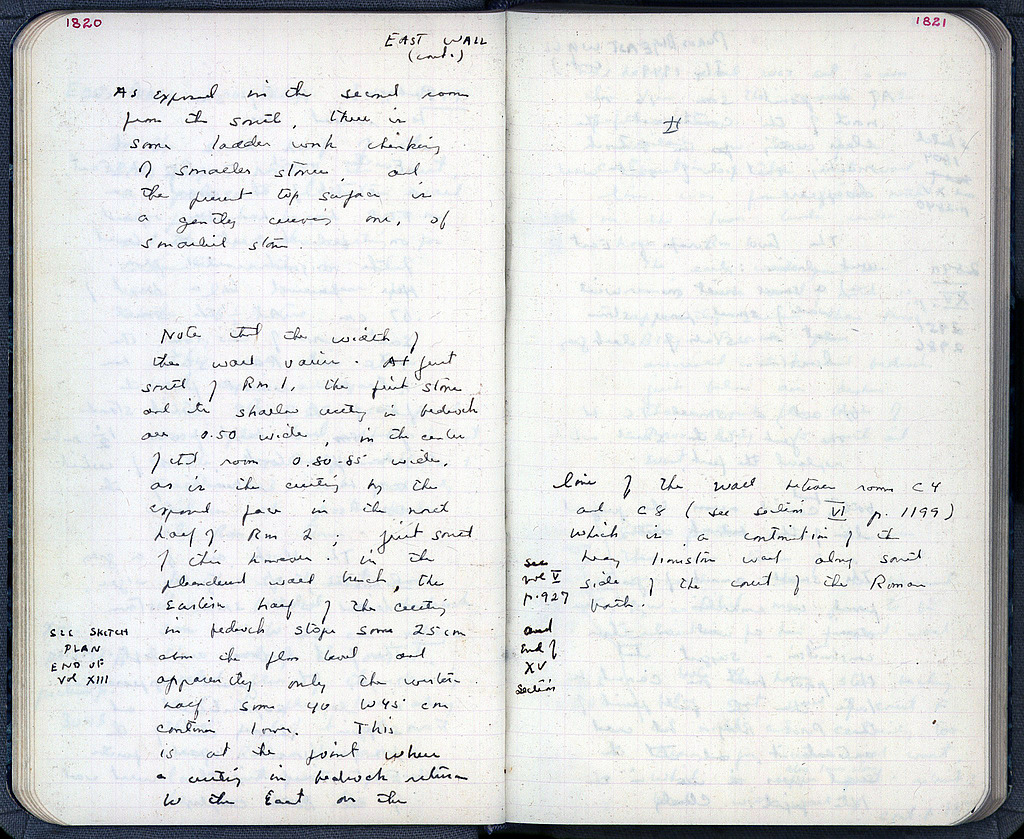 1820
EAST WALL
(cont.)
As exposed in the second room
from the south, there is
some ladder work chinking
of smaller stones, and
the present top surface is
a gently curving one, of
smallish stone.
Note that the width of
the wall varies. At just
south of Rm 1, the first stone
and its shallow cutting in bedrock
are 0.50 wide, in the center
of that room 0.80-85 wide,
as is the cutting by the
exposed face in the north
half of Rm 2; just south
of this however in the
plundered wall trench, the
Eastern half of the cutting
in bedrock stops some 25 cm
above the floor level and
apparently only the western
half some 40 W45 cm
continues lower. This
is at the point where
a cutting in bedrock returns
to the East on the
SEE SKETCH
PLAN
END OF
Vol XIII
1821
II
line of the wall between rooms C4
and C8 (see section VI p. 1199)
which is a continuation of the
heavy limestone wall along south
side of the court of the Roman
bath.
see
vol V
p. 927
and
End of
XV
section